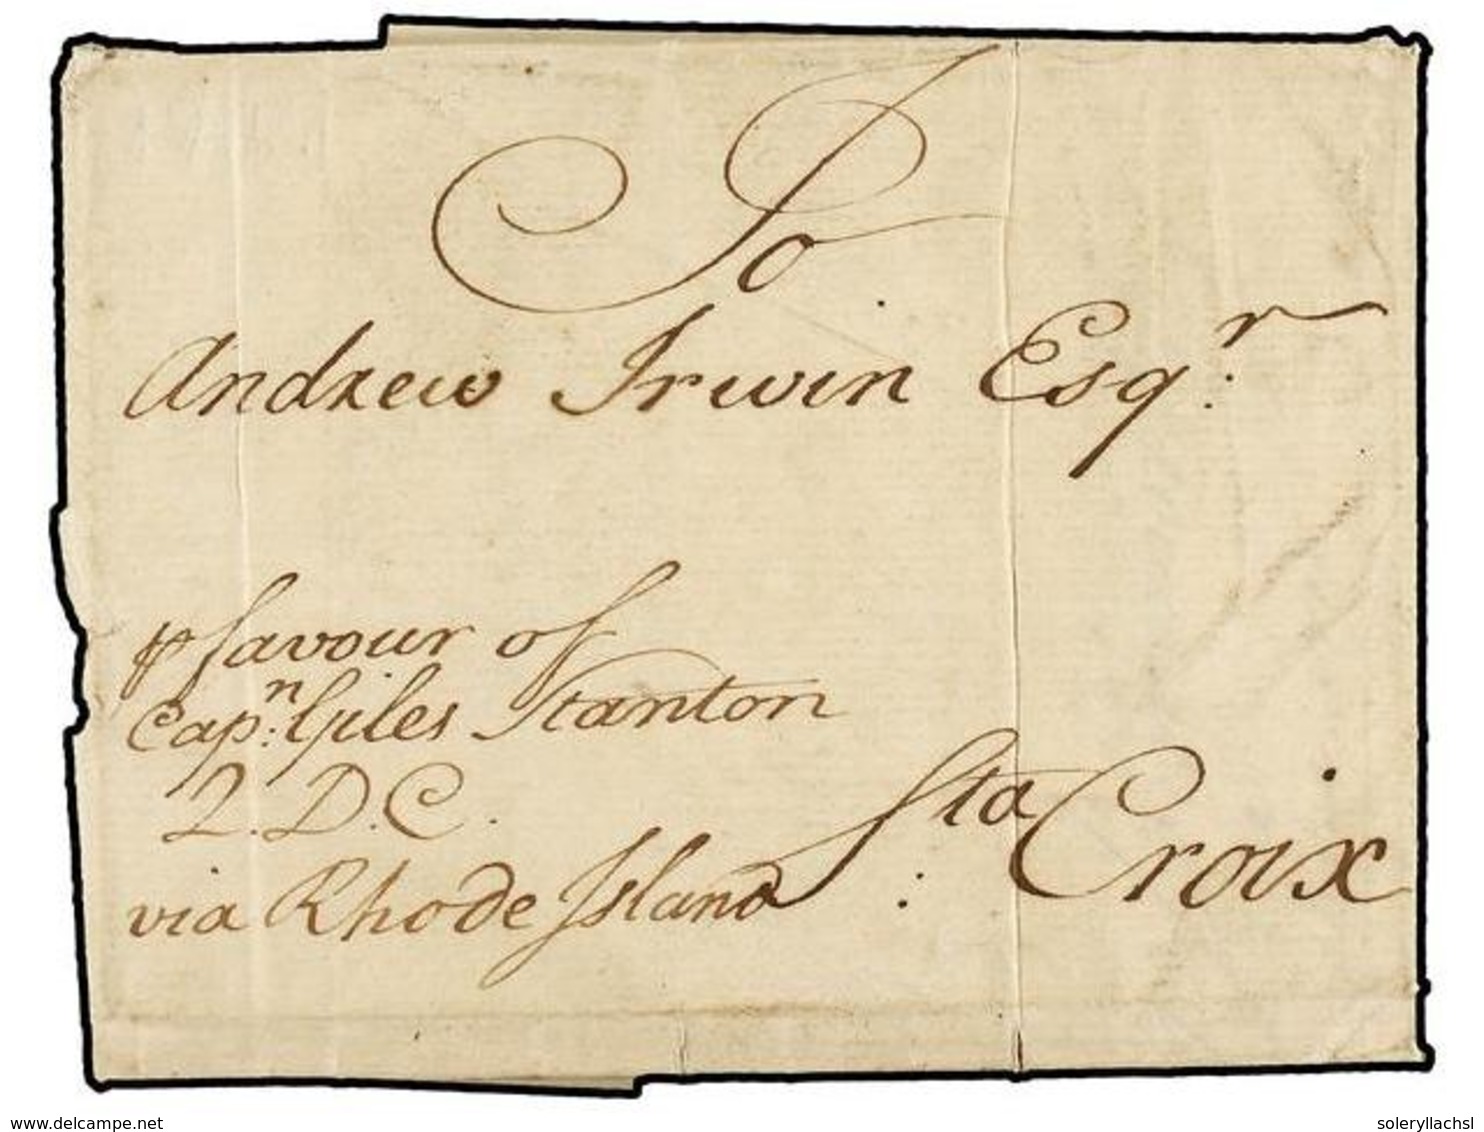 To
Andrew Irwin Esqr.
p favour of
Capn. Giles Stanton
2. D. C.
via Rhode Island
Sta. Croix
www.delcampe.net
soleryllachsl